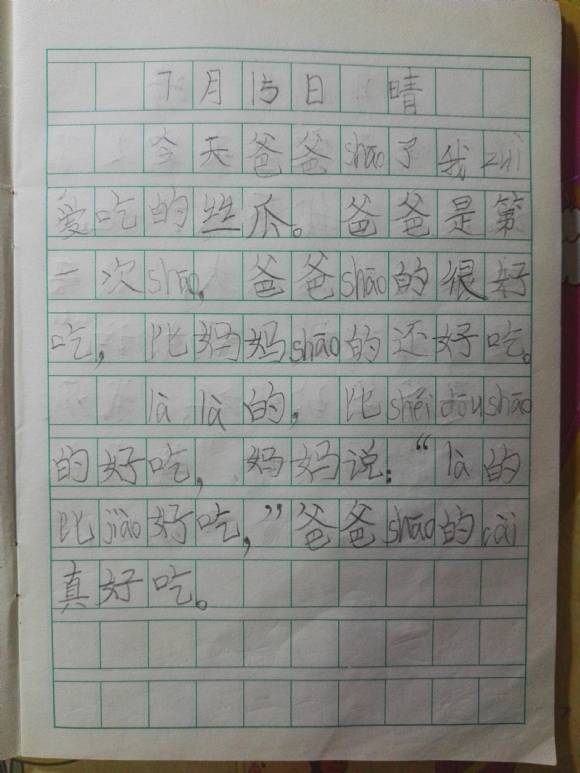 7月15日 晴
今天爸爸shāo了我zuì
爱吃的丝瓜。爸爸是第
一次shāo,爸爸shāo的很好
吃,比妈妈shāo的还好吃。
là là的,比shéi dōu shāo
的好吃,妈妈说:“là的
比jiào好吃,”爸爸shāo的cài
真好吃。